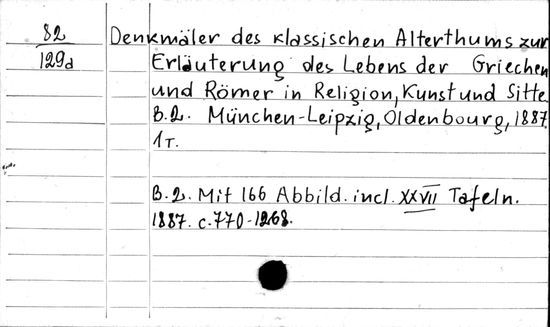 82
129d
Denkmäler des klassischen Alterthums zur
Erläuterung des Lebens der Griechen
und Römer in Religion, Kunst und Sitte
B.2. München-Leipzig, Oldenbourg, 1887.
1 T.
B.2. Mit 166 Abbild. incl. XXVII Tafeln.
1887. c. 770-1268.